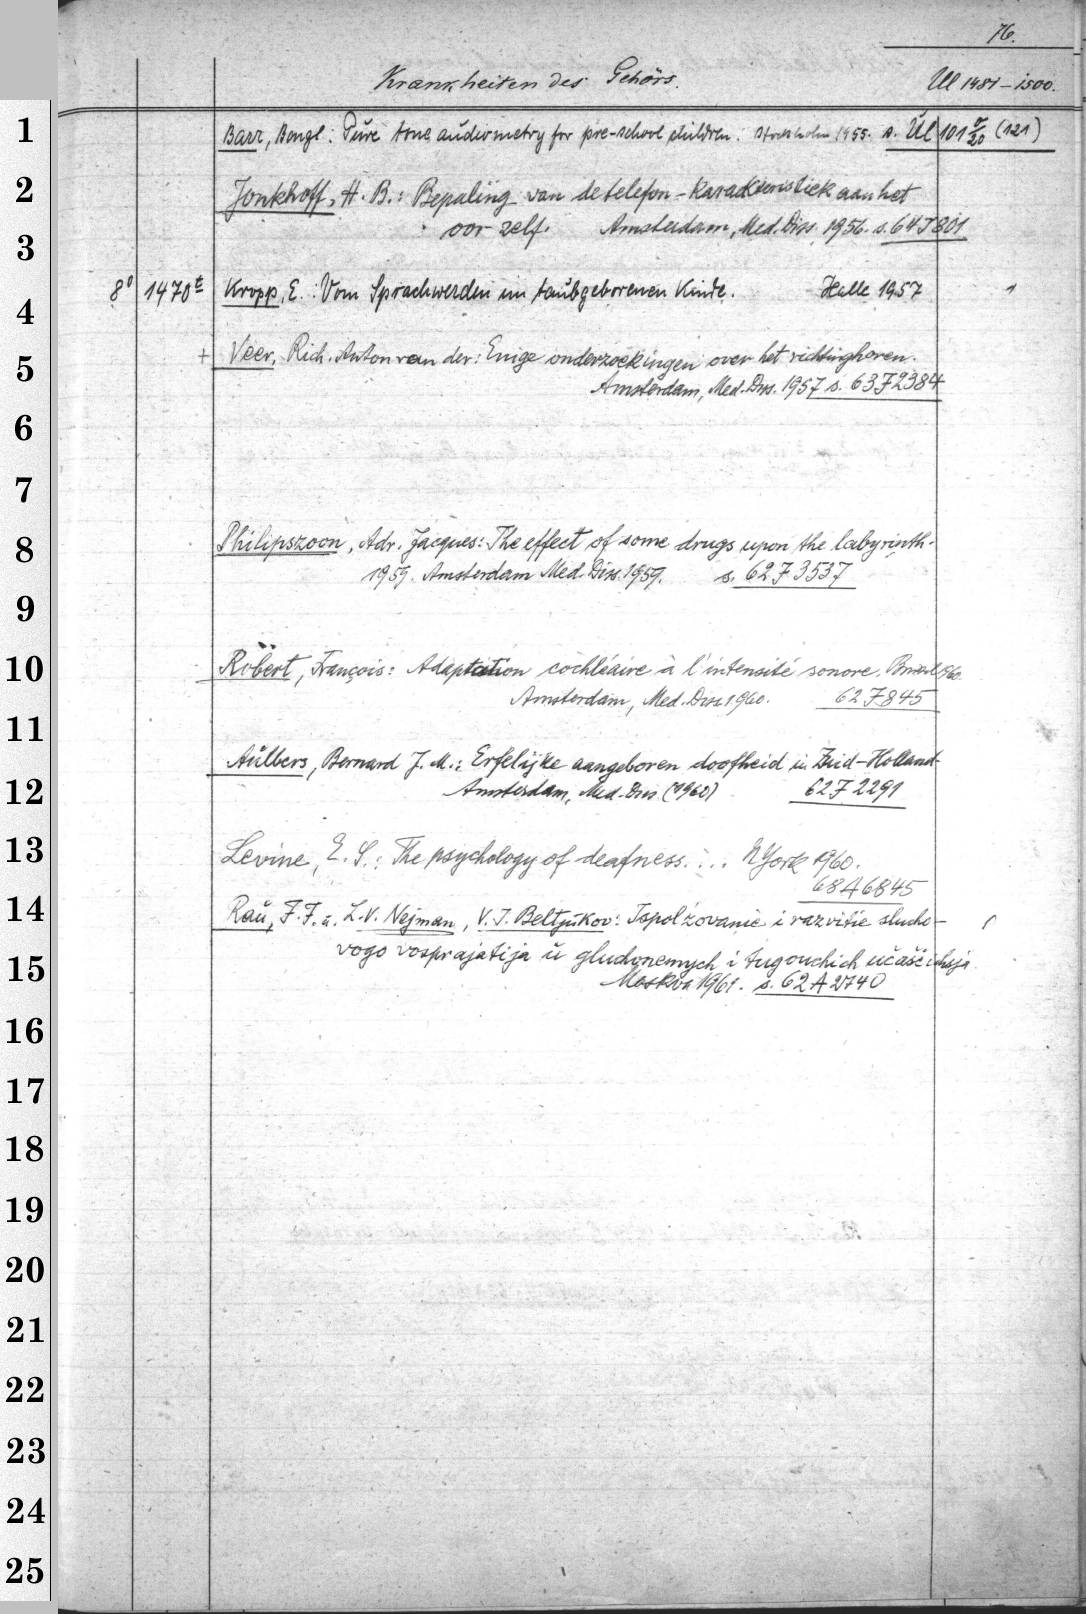 76.
Krankheiten des Gehörs. Ul 1481-1500.
1 Barr, Bengt: Pure tone audiometry for pre-school children. Stockholm 1955. s. Ul 101 (121)
2 Jonkhoff, H. B.: Bepaling van de telefon-karakteristiek aan het
3 oor zelf. Amsterdam, Med. Diss. 1956. s. 64 J 801
8° 1470t Kropp, E.: Vom Sprachwerden im taubgeborenen Kinde. Halle 1957 1
4
+ Veer, Rich. Anton van der: Enige onderzoekingen over het richtinghoren.
5 Amsterdam, Med. Diss. 1957 s. 63 J 2384
6
7
8 Philipszoon, Adr. Jacques: The effect of some drugs upon the labyrinth.
1959. Amsterdam Med. Diss. 1959. s. 62 J 3537
9
10 Robert, François: Adaptation cochléaire à l'intensité sonore. 1960
Amsterdam, Med. Diss 1960. 62 J 845
11
Aulbers, Bernard J. M.: Erfelijke aangeboren doofheid in Zuid-Holland.
12 Amsterdam, Med. Diss (1960) 62 J 2291
13 Levine, E. S.: The psychology of deafness... N York 1960.
68 A 6845
14 Rau, F. F. u. L. V. Nejman, V. I. Beltjukov: Ispol'zovanie i razvitie slucho-
15 vogo vosprajatija u gluchonemych i tugouchich učaščichsja
Moskva 1961. s. 62 A 2740
16
17
18
19
20
21
22
23
24
25